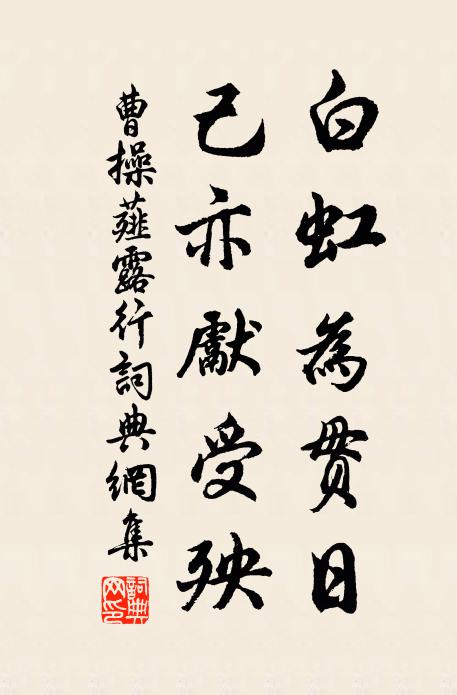 白虹為貫日
己亦獻受殃
曹操薤露行詞典網集
詞典網印